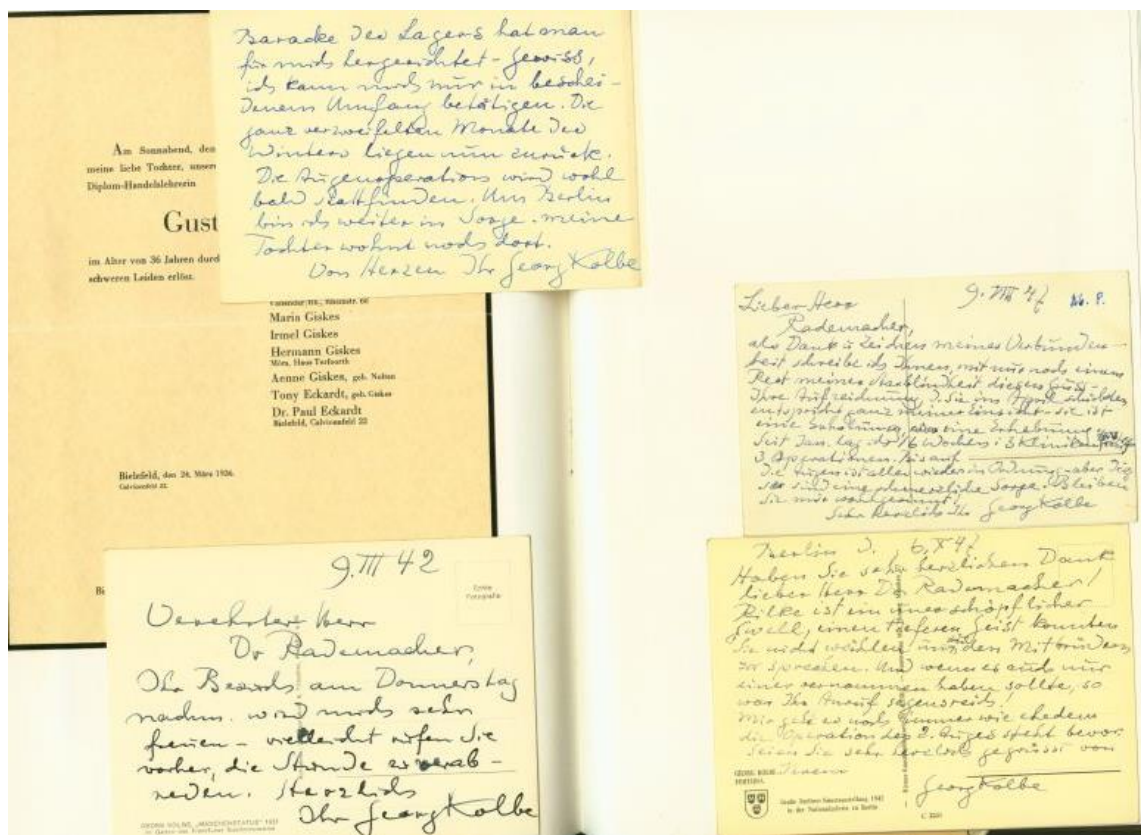 Am Sonnabend, den
meine liebe Tochter,
Diplom-Handelslehrerin
Gust
im Alter von 36 Jahren
schweren Leiden erlöst.
Maria Giskes
Irmel Giskes
Hermann Giskes
Aenne Giskes, geb.
Tony Eckardt, geb. Giskes
Dr. Paul Eckardt
Bielefeld, 22
Bielefeld, den 24. März
Baracke des Lagers hat man
für mich hergerichtet - Gewiss,
ich kann mich nur in beschei-
denem Umfang betätigen. Die
ganz verzweifelten Monate des
Winters liegen nun zurück.
Die Augenoperation wird wohl
bald stattfinden. Um Berlin
bin ich weiter in Sorge - meine
Tochter wohnt noch dort.
Von Herzen Ihr Georg Kolbe
9. III 42
Verehrter Herr
Dr Rademacher,
Ihr Besuch am Donnerstag
nachm. wird mich sehr
freuen - vielleicht rufen Sie
vorher, die Stunde zu verab-
reden. Herzlich
Ihr Georg Kolbe
Echte
Fotografie
GEORG KOLBE, 1937
9. VIII 47
Lieber Herr
Rademacher,
als Dank u Zeichen meines Verbunden-
seit schreibe ich Ihnen, mit nur noch einem
Rest meiner Starblindheit diesen Gruss -
Ihre Aufzeichnung, d. Sie im April schickten
entspricht ganz meiner Einsicht - sie ist
eine
Seit Jan. lag ich 16 Wochen i. 3 Kliniken
3 Operationen. Bis auf
Die Augen ist alles wieder in Ordnung - aber
sind eine schmerzliche Sorge. Bleiben
Sie mir wohlgesonnt!
Sehr herzlich Ihr Georg Kolbe
Berlin 6. X 47
Haben Sie sehr herzlichen Dank
lieber Herr Dr. Rademacher!
Rilke ist ein unerschöpflicher
Quell, einen tieferen Geist konnten
Sie nicht wählen um den Mitbrüdern
zu sprechen. Und wenn es auch nur
einer vernommen haben sollte, so
war Ihr Anruf segensreich!
Mir geht es noch immer wie ehedem
die Operation des 2. Auges steht bevor.
Seien Sie sehr herzlich gegrüsst von
Ihrem
Georg Kolbe
GEORG KOLBE
Große Berliner Kunstausstellung 1942
in der Nationalgalerie zu Berlin